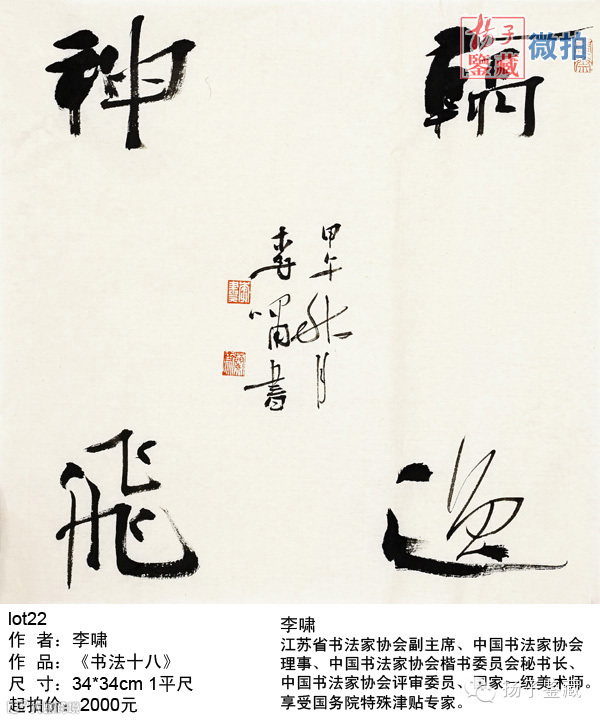 扬子
鑒藏
微拍
翰逸
神飛
甲午秋月
李嘯書
lot22
作 者：李啸
作 品：《书法十八》
尺 寸：34*34cm 1平尺
起拍价：2000元
李啸
江苏省书法家协会副主席、中国书法家协会
理事、中国书法家协会楷书委员会秘书长、
中国书法家协会评审委员、国家一级美术师。
享受国务院特殊津贴专家。
扬子鉴藏